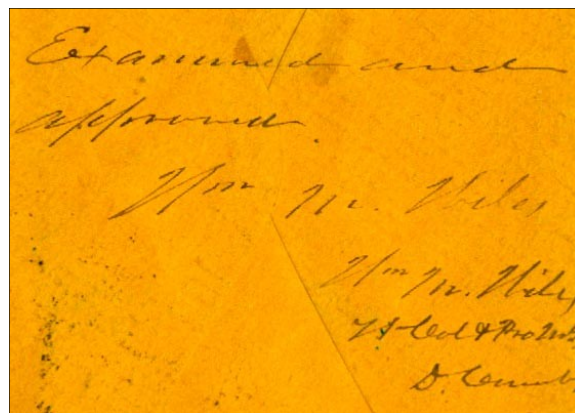 Examined and
approved.
Wm M. Wiles
Wm M. Wiles
Lt Col & Pro M
D. Cumb